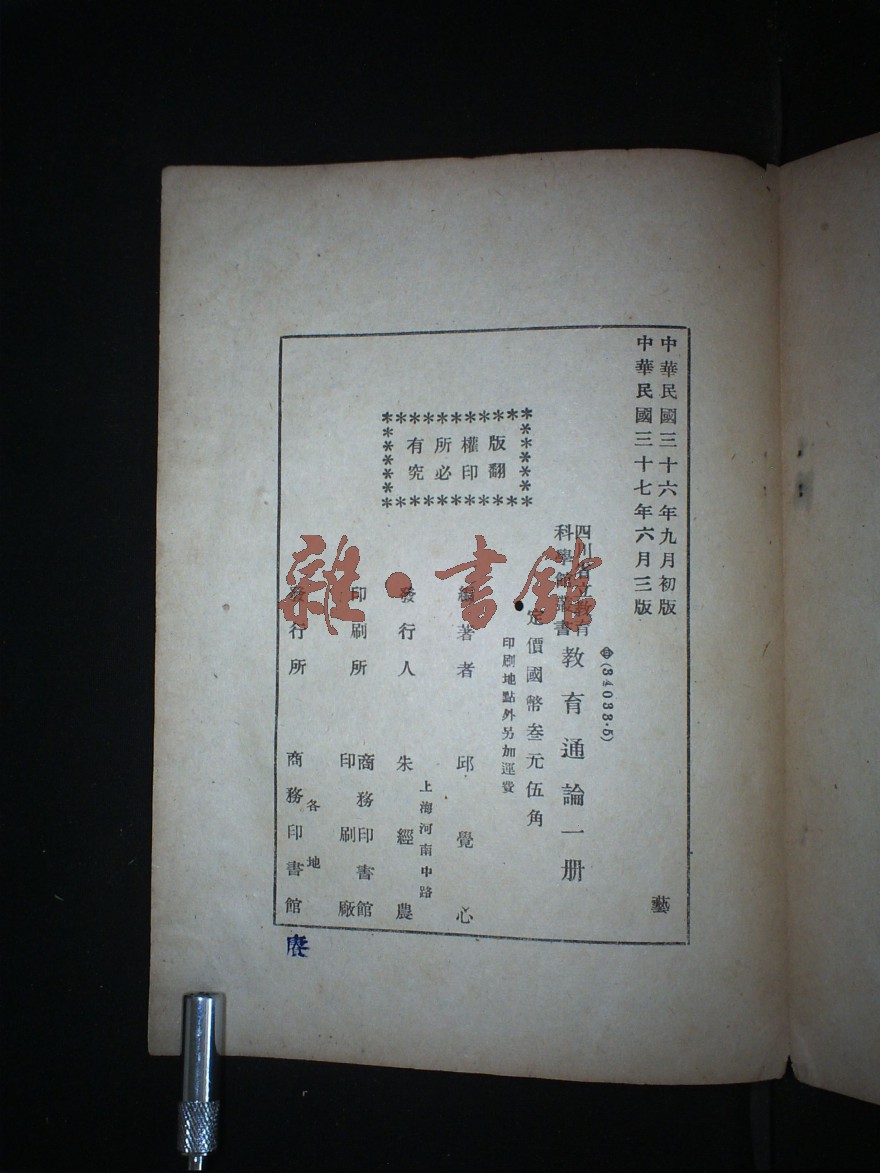 中華民國三十六年九月初版
中華民國三十七年六月三版
藝
(34033·5)
四川省立教育
科學館叢書
教育通論一册
定價國幣叁元伍角
印刷地點外另加運費
版權所有
翻印必究
編著者 邱覺心
發行人 朱經農
上海河南中路
印刷所 商務印書館
印刷廠
各地
發行所 商務印書館
雜·書館